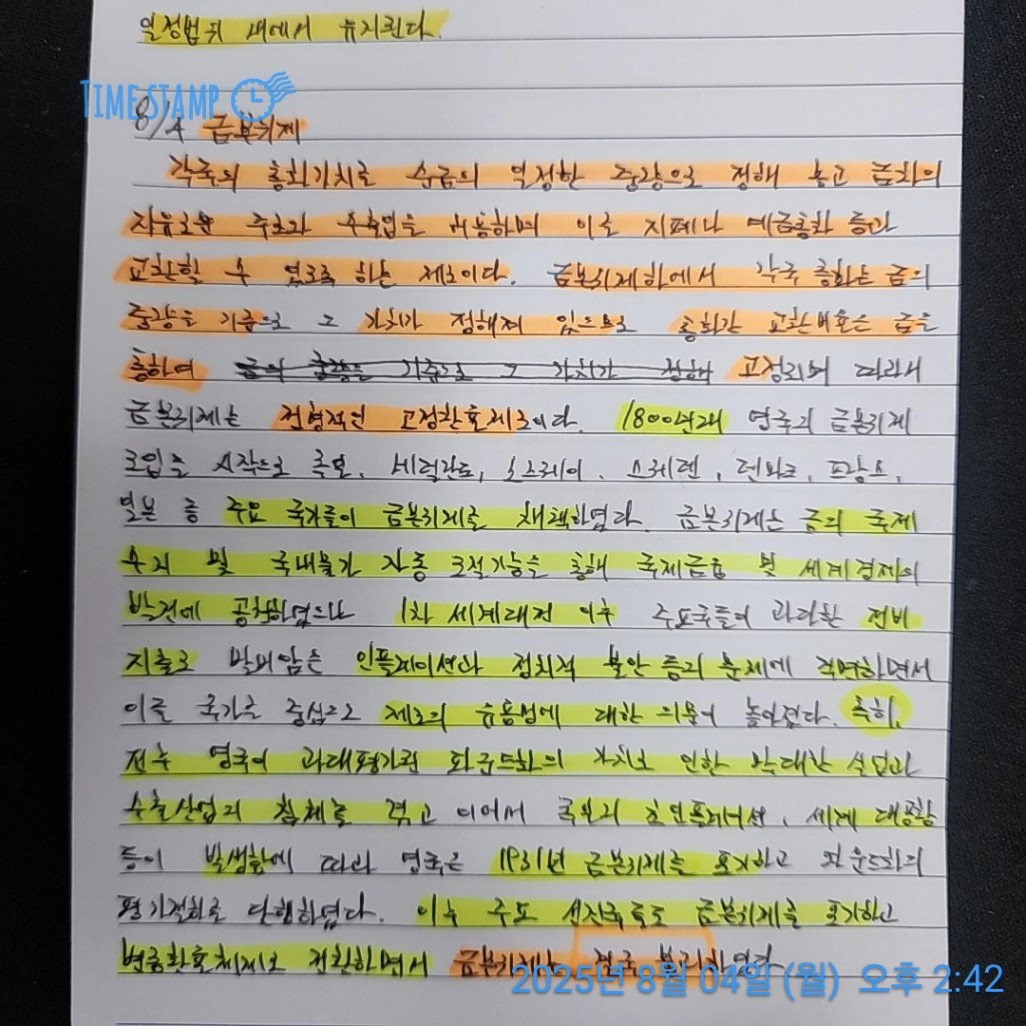 일정범위 내에서 유지된다.
TIMESTAMP
8/4 금본위제
각국의 통화가치를 순금의 일정한 중량으로 정해 놓고 금화의
자유로운 주조와 수출입을 허용하며 이를 지폐나 예금통화 등과
교환할 수 있도록 하는 제도이다. 금본위제하에서 각국 통화는 금의
중량을 기준으로 그 가치가 정해져 있으므로 통화간 교환비율은 금을
통하여 금의 중량을 기준으로 그 가치가 정해 고정되며 따라서
금본위제는 전형적인 고정환율제도이다. 1800년대 영국의 금본위제
도입을 시작으로 독일, 네덜란드, 노르웨이, 스웨덴, 덴마크, 프랑스,
일본 등 주요 국가들이 금본위제를 채택하였다. 금본위제는 금의 국제
수지 및 국내물가 자동 조절기능을 통해 국제금융 및 세계경제의
발전에 공헌하였으나 1차 세계대전 이후 주요국들이 과다한 전비
지출로 말미암은 인플레이션과 정치적 불안 등의 문제에 직면하면서
이들 국가를 중심으로 제도의 유용성에 대한 의문이 높아졌다. 특히,
전후 영국이 과대평가된 파운드화의 가치로 인한 막대한 실업과
수출산업의 침체를 겪고 이어서 독일의 초인플레이션, 세계 대공황
등이 발생함에 따라 영국은 1931년 금본위제를 포기하고 파운드화의
평가절하를 단행하였다. 이후 주요 선진국들도 금본위제를 포기하고
변동환율체제로 전환하면서 금본위제는 결국 붕괴하였다
2025년 8월 04일 (월) 오후 2:42